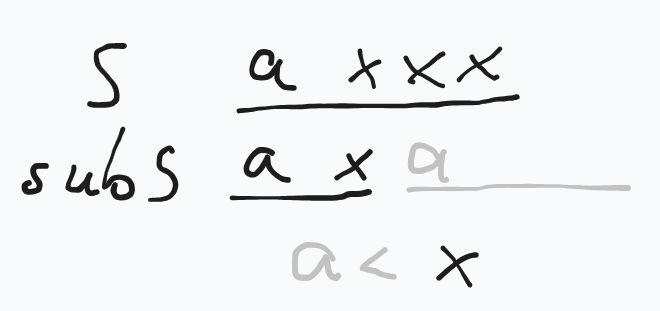 S a x x x
subS a x a
a < x